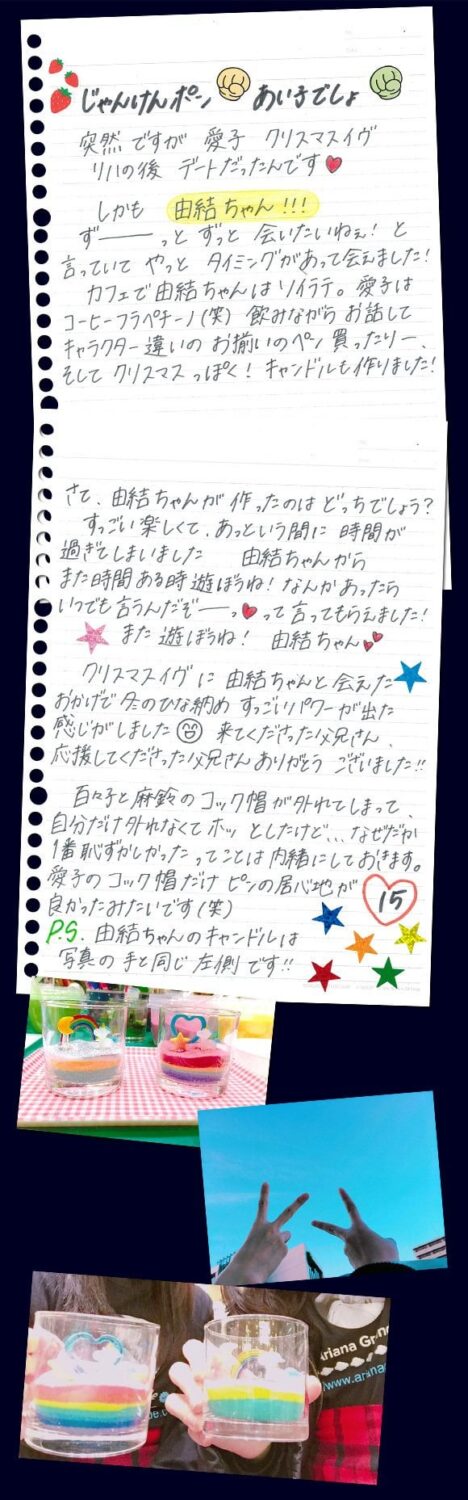 じゃんけんポン あい子でしょ
突然ですが 愛子 クリスマスイヴ
リハの後 デートだったんです
しかも 由結ちゃん!!!
ず――っと ずっと 会いたいねぇ!と
言っていて やっと タイミングがあって会えました!
カフェで由結ちゃんはソイラテ。愛子は
コーヒーフラペチーノ(笑) 飲みながら お話して
キャラクター違いの お揃いのペン 買ったりー、
そして クリスマスっぽく! キャンドルも作りました!
さて、由結ちゃんが 作ったのは どっちでしょう?
すっごい楽しくて、あっという間に 時間が
過ぎてしまいました 由結ちゃんから
また時間ある時 遊ぼうね! なんかあったら
いつでも言うんだぞ――っ って言ってもらえました!
また 遊ぼうね! 由結ちゃん
クリスマスイヴ に 由結ちゃんと 会えた
おかげで 冬のひな納め すっごいパワーが出た
感じがしました 来てくださった父兄さん、
応援してくださった父兄さん ありがとう ございました!!
百々子と麻鈴の コック帽が外れてしまって、
自分だけ外れなくてホッ としたけど... なぜだか
1番恥ずかしかった ってことは 内緒にしておきます。
愛子のコック帽だけ ピンの居心地が
良かったみたいです(笑) 15
P.S. 由結ちゃんのキャンドルは
写真の 手と同じ 左側です!!
Ariana Gr
www.arianag